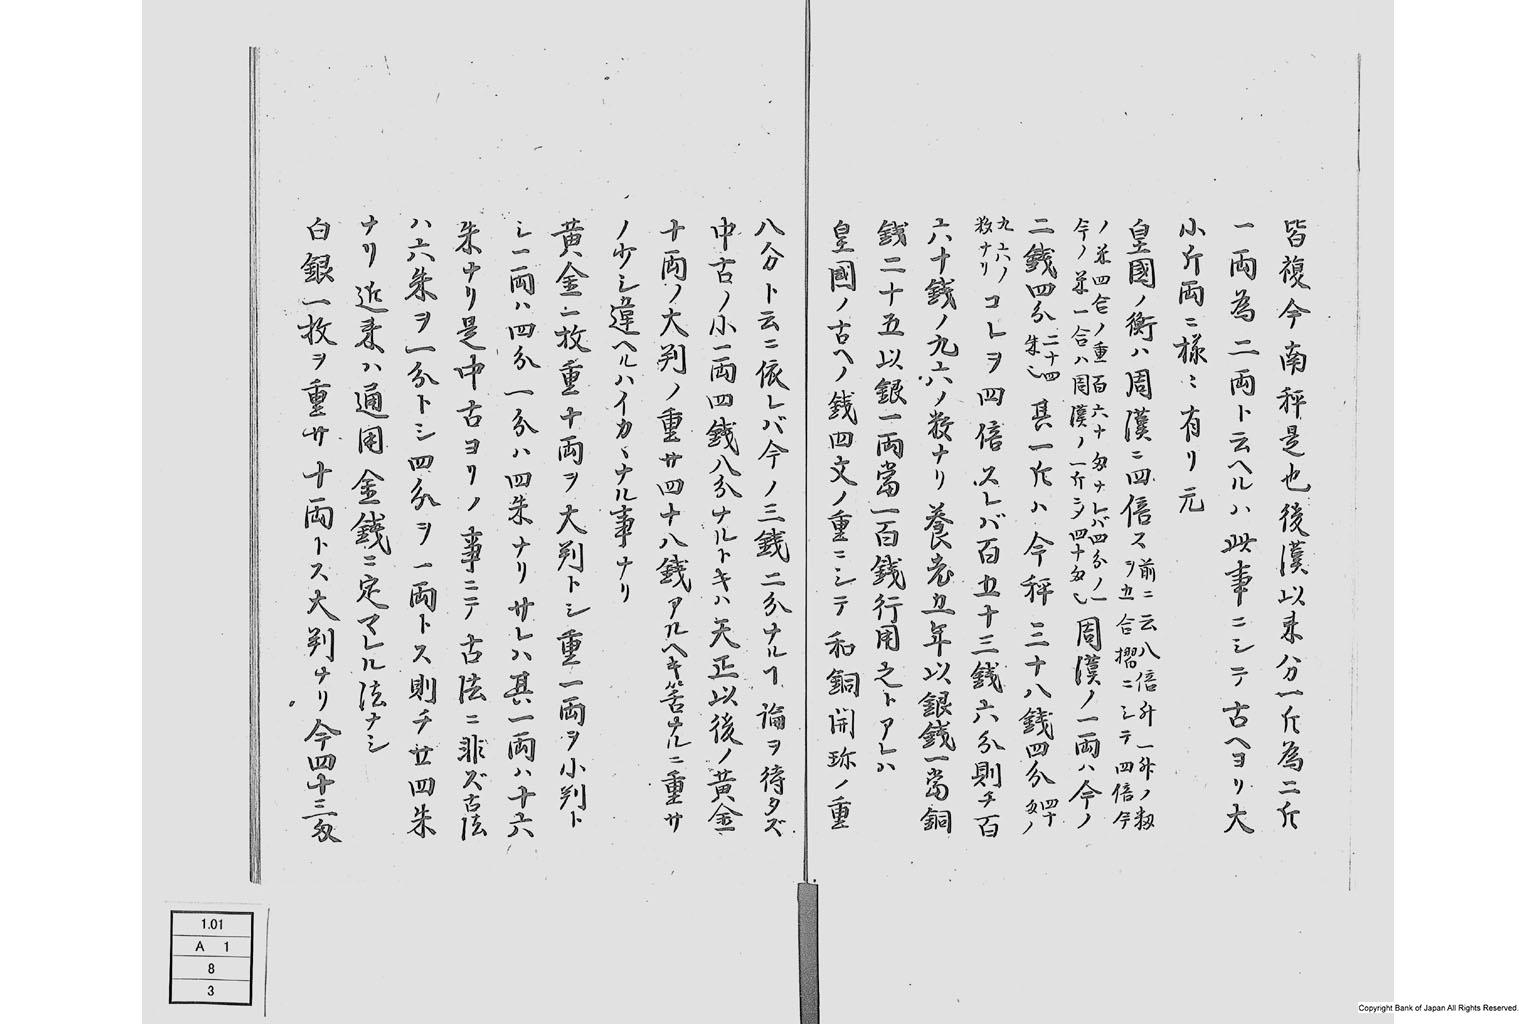 皆複今南秤是也後漢以来分一斤為二斤
一両為二両ト云ヘルハ此事ニシテ古ヘヨリ大
小斤両ニ様ニ有リ元
皇國ノ衡ハ周漢ニ四倍ス前ニ云八倍升一升ノ籾
ヲ五合摺ニシテ四倍今
ノ米四合ノ重百六十匁ナレバ四分ノ一
今ノ米一合ハ周漢ノ一斤ニシテ四十匁也周漢ノ一両ハ今ノ
二銭四分二十四
朱也其一斤ハ今秤三十八銭四分四十
匁ノ
九六ノ
数ナリコレヲ四倍スレバ百五十三銭六分則チ百
六十銭ノ九六ノ数ナリ養老五年以銀銭一當銅
銭二十五以銀一両當一百銭行用之トアレハ
皇國ノ古ヘノ銭四文ノ重ニシテ和銅開珎ノ重
八分ト云ニ依レバ今ノ三銭二分ナルヿ論ヲ待タズ
中古ノ小一両四銭八分ナルトキハ天正以後ノ黄金一
十両ノ大判ノ重サ四十八銭アルヘキ筈ナルニ重サ
ノ少シ違ヘルハイカヽナル事ナリ
黄金一枚重十両ヲ大判トシ重一両ヲ小判ト
シ一両ハ四分一分ハ四朱ナリサレハ其一両ハ十六
朱ナリ是中古ヨリノ事ニテ古法ニ非ズ古法
ハ六朱ヲ一分トシ四分ヲ一両トス則チ廿四朱
ナリ近来ハ通用金銭ニ定マレル法ナシ
白銀一枚ヲ重サ十両トス大判ナリ今四十三匁
1.01
A 1
8
3
Copyright Bank of Japan All Rights Reserved.